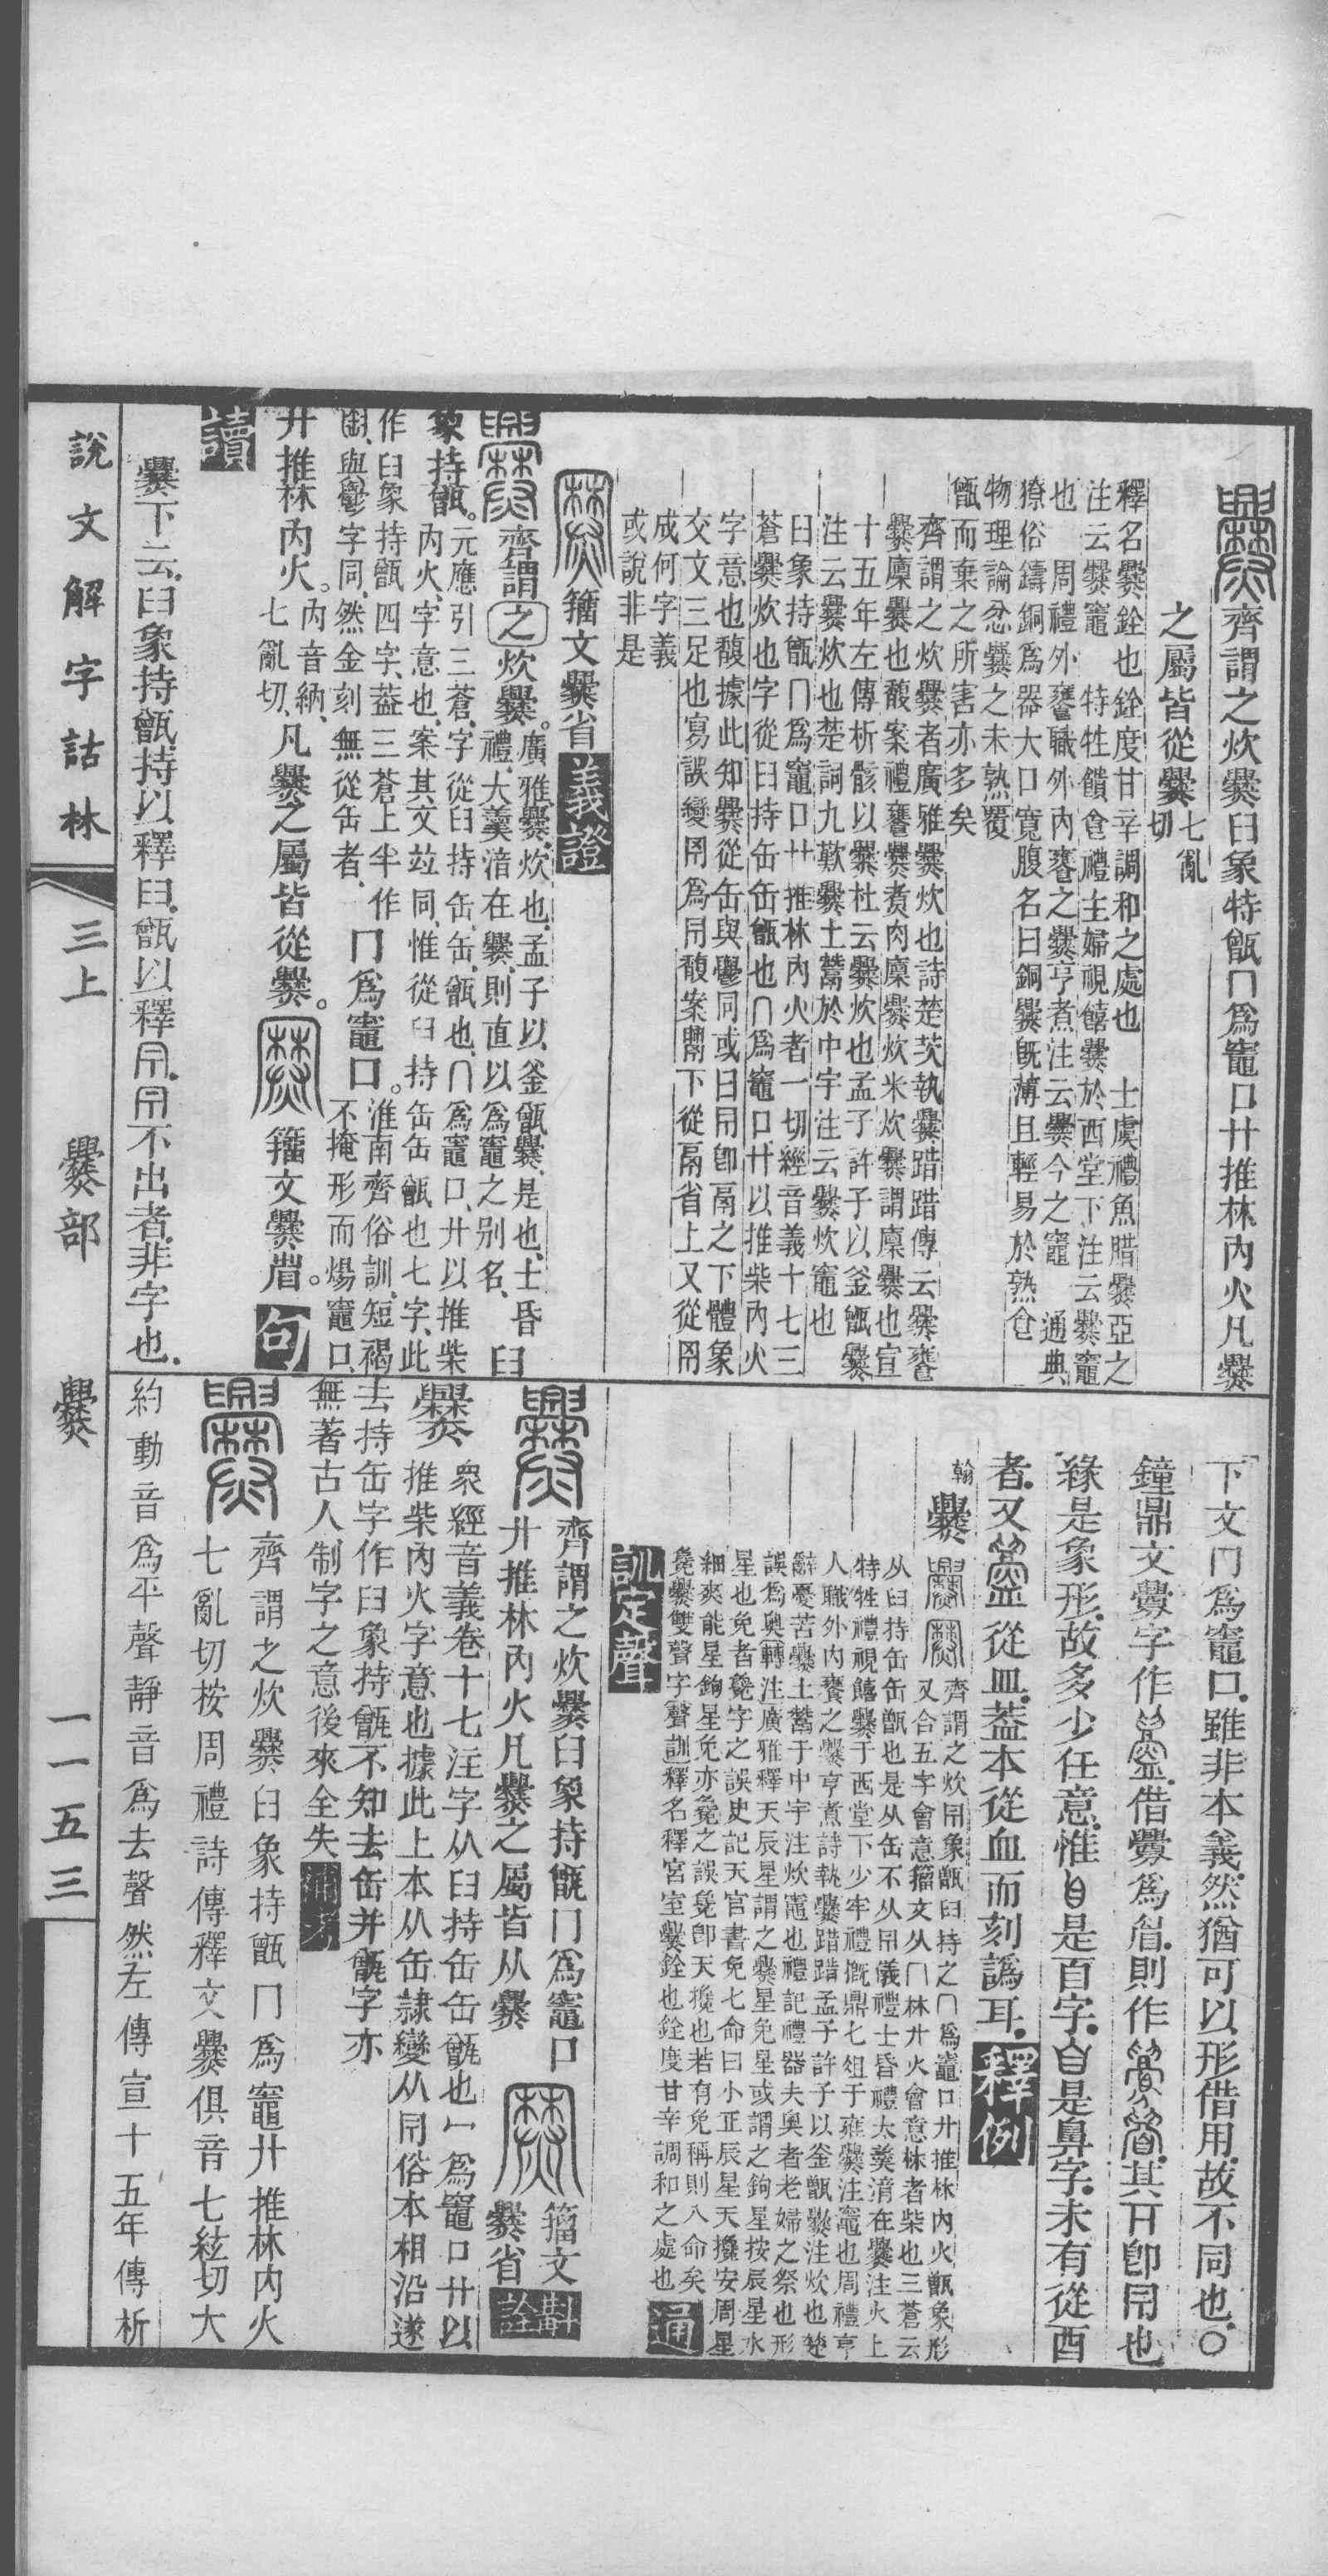 齊謂之炊爨𦥑象持甑冂爲竈口廾推林內火凡爨
之屬皆從爨七亂切
釋名爨銓也銓度甘辛調和之處也　士虞禮魚腊爨亞之
注云爨竈　特牲饋食禮主婦視饎爨於西堂下注云爨竈
也　周禮外饔職外內饔之爨亨煮注云爨今之竈　通典
獠俗鑄銅爲器大口寬腹名曰銅爨既薄且輕易於熟食
物理論忿爨之未熟覆
甑而棄之所害亦多矣
齊謂之炊爨者廣雅爨炊也詩楚茨執爨踖踖傳云爨饔
爨廩爨也馥案禮饔爨煮肉廩爨炊米炊爨謂廩爨也宣
十五年左傳析骸以爨杜云爨炊也孟子許子以釜甑爨
注云爨炊也楚詞九歎爨土鬵於中宇注云爨炊竈也
𦥑象持甑冂爲竈口廾推林內火者一切經音義十七三
蒼爨炊也字從𦥑持缶缶甑也冂爲竈口廾以推柴內火
字意也馥據此知爨從缶與鬱同或曰用卽鬲之下體象
交文三足也寫誤變
成何字義
或說非是
籒文爨省義證
齊謂之炊爨。廣雅爨,炊也,孟子以釜甑爨,是也,士昏
禮,大羹湆在爨,則直以爲竈之別名,𦥑
象持甑。元應引三蒼,字從𦥑持缶,缶,甑也,冂爲竈口,廾以推柴
內火,字意也,案其文竝同,惟從𦥑持缶缶甑也七字,此
作𦥑象持甑四字,葢三蒼上半作
與鬱字同,然金刻無從缶者,冂爲竈口。淮南齊俗訓,短褐
不掩形而煬竈口
廾推林內火。內音納,七亂切,凡爨之屬皆從爨。籒文爨省。句
讀
爨下云,𦥑象持甑,持以釋𦥑,甑以釋不出者,非字也,
說文解字詁林　三上　爨部　爨　一一五三
下文冂爲竈口,雖非本義,然猶可以形借用,故不同也,○
鐘鼎文釁字作借釁爲眉,則作其卽也
緣是象形,故多少任意,惟是百字,是鼻字,未有從酉
者,又從皿,葢本從血而刻譌耳,釋例
翰爨齊謂之炊象甑𦥑持之冂爲竈口廾推林內火甑象形
又合五字會意籒文从冂林廾火會意林者柴也三蒼云
从𦥑持缶缶甑也是从缶不从儀禮士昏禮太羹湆在爨注火上
特牲禮視饎爨于西堂下少牢禮概鼎七俎于雍爨注竈也周禮亨
人職外內饔之爨亨煮詩執爨踖踖孟子許子以釜甑爨注炊也楚
辭憂苦爨土鬵于中宇注炊竈也禮記禮器夫奧者老婦之祭也形
誤爲奧轉注廣雅釋天辰星謂之爨星免星或謂之鉤星按辰星水
星也免者毚字之誤史記天官書免七命曰小正辰星天欃安周星
細爽能星鉤星免亦毚之誤毚卽天欃也若有免稱則八命矣
毚爨雙聲字聲訓釋名釋宮室爨銓也銓度甘辛調和之處也通
訓定聲
齊謂之炊爨𦥑象持甑冂爲竈口
廾推林內火凡爨之屬皆从爨籒文爨省斠詮
爨眾經音義卷十七注字从𦥑持缶缶甑也冖爲竈口廾以
推柴內火字意也據此上本从缶隸變从俗本相沿遂
去持缶字作𦥑象持甑不知去缶并甑字亦
無著古人制字之意後來全失
齊謂之炊爨𦥑象持甑冂爲竈廾推林內火
七亂切按周禮詩傳釋文爨俱音七絃切大
約動音爲平聲靜音爲去聲然左傳宣十五年傳析